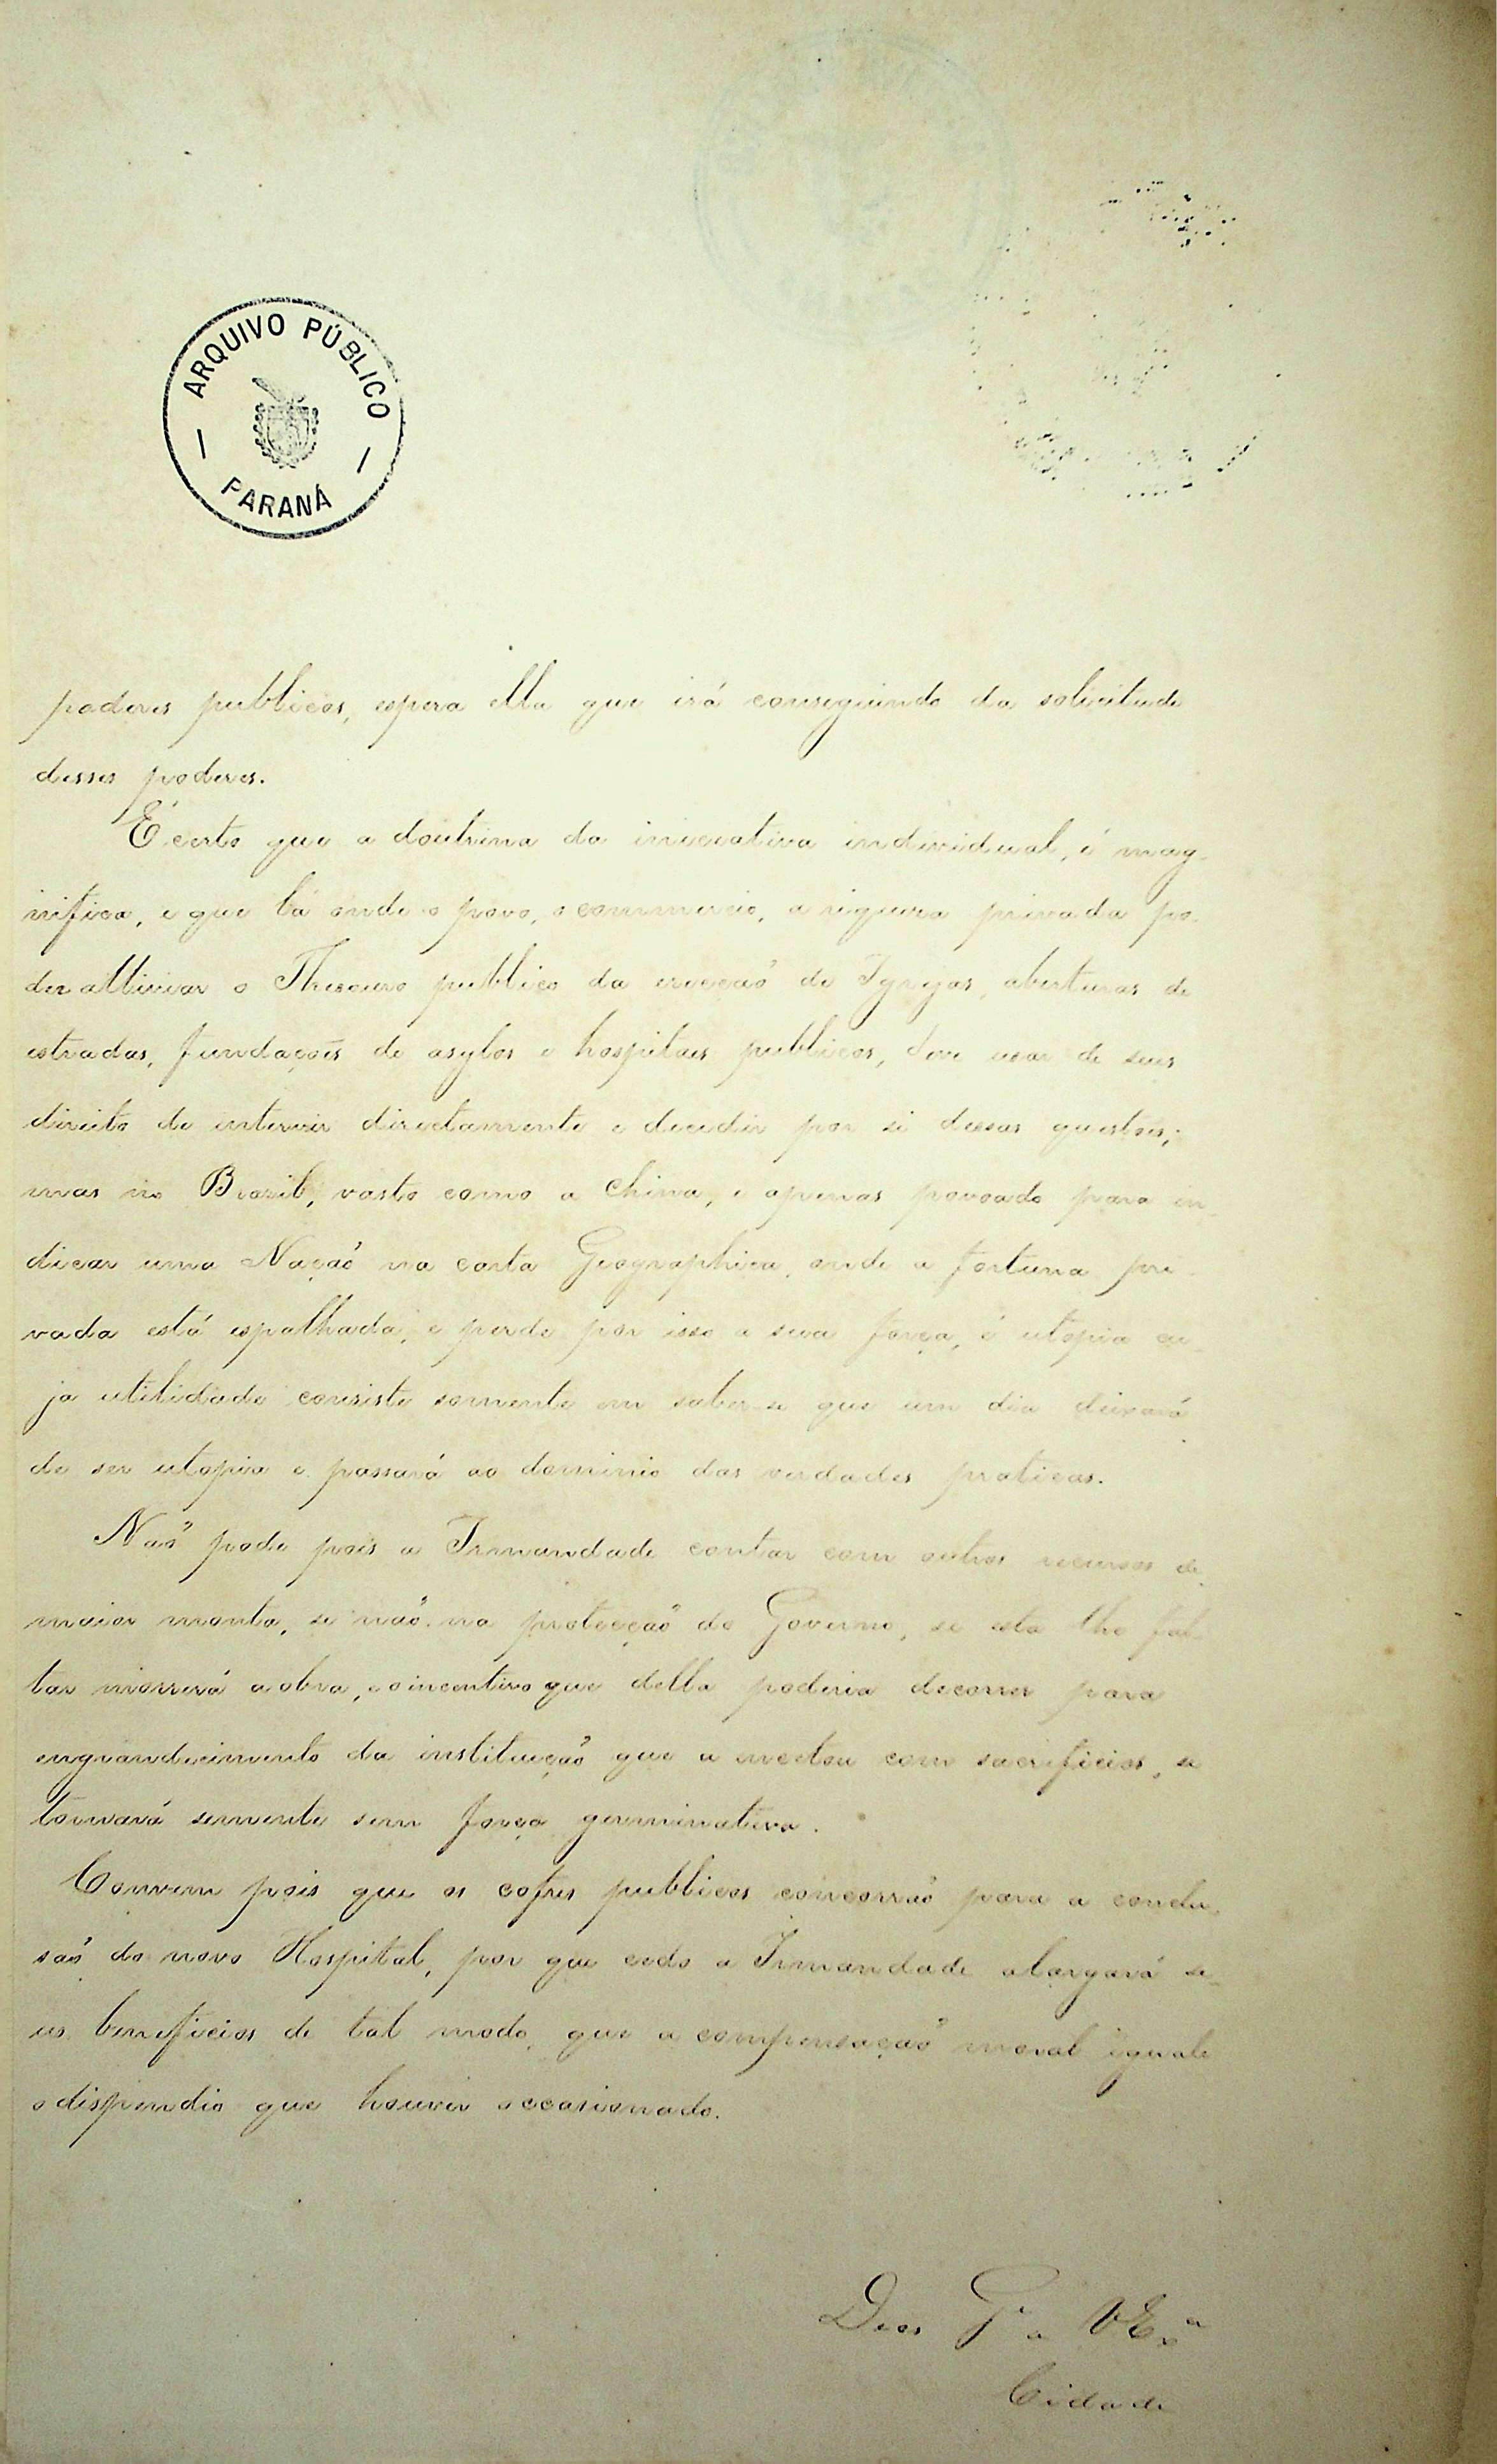 ARQUIVO PÚBLICO
PARANÁ
poderes publicos, espera ella que irá conseguindo da solicitude
desses poderes.
É certo que a doutrina da iniciativa individual, é mag-
nifica, e que lá onde o povo, o commercio, a riquesa privada po-
der alliviar o Thesouro publico da erecção de Igrejas, aberturas de
estradas, fundações de asylos e hospitaes publicos, deve usar de seus
direito de intervir directamente e decidir por si dessas questões;
mas no Brazil, vasto como a China, e apenas povoado para in-
dicar uma Nação na carta Geographica, onde a fortuna pri-
vada está espalhada, e perde por isso a sua força, é utopia cu-
ja utilidade consiste somente em saber-se que um dia deixará
de ser utopia e passará ao dominio das verdades praticas.
Não pode pois a Irmandade contar com outros recursos de
maior monta, se não na protecção do Governo, se esta lhe fal-
tar morrerá a obra, e o incentivo que della poderia decorrer para
engrandecimento da instituição que a encetou com sacrificios, se
tornará semente sem força germinativa.
Convem pois que os cofres publicos concorrão para a conclu-
são do novo Hospital, por que cedo a Irmandade alargará se-
us beneficios de tal modo, que a compensação moral iguale
o dispendio que houver occasionado.
Deos G.e a VEx.a
Cidade